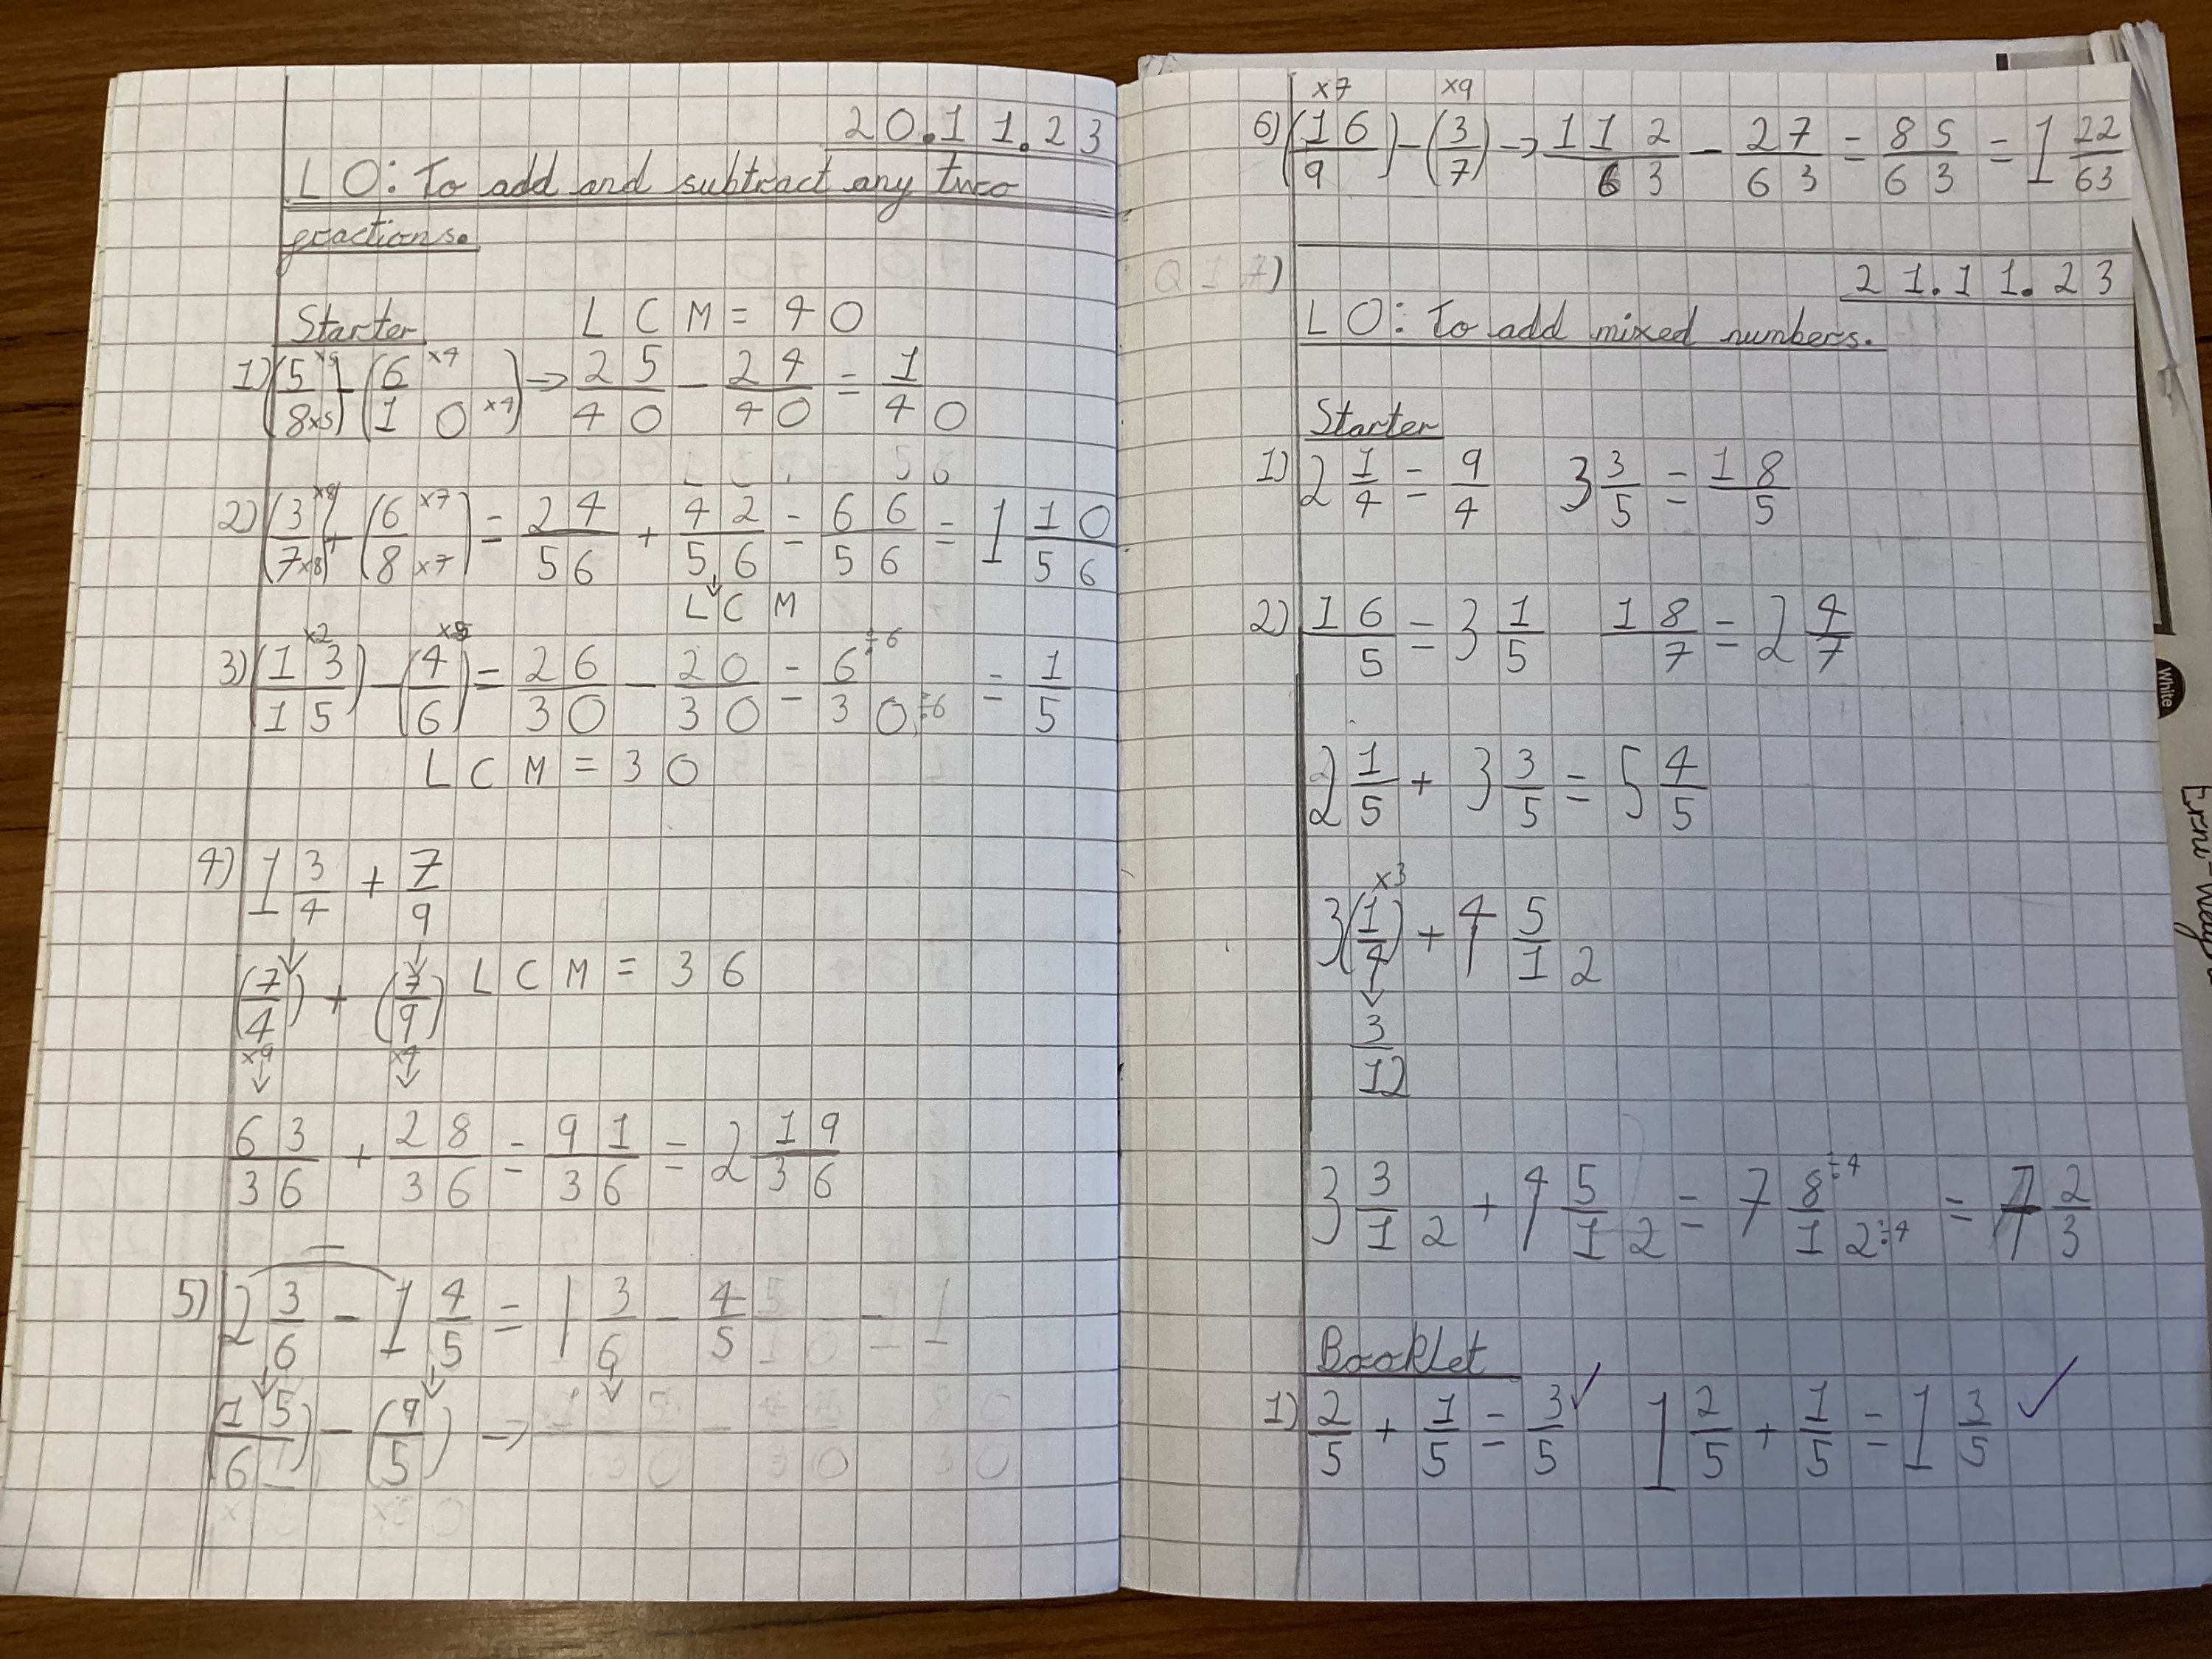 20.11.23
LO: To add and subtract any two
fractions.
Starter LCM = 40
1) (5/8 ×5 ×5) - (6/10 ×4 ×4) → 25/40 - 24/40 = 1/40
56
2) (3/7 ×8 ×8) + (6/8 ×7 ×7) = 24/56 + 42/56 = 66/56 = 1 10/56
LCM
3) (13/15) ×2 - (4/6) ×5 = 26/30 - 20/30 = 6/30 ÷6 ÷6 = 1/5
LCM = 30
4) 1 3/4 + 7/9
(7/4) + (7/9) LCM = 36
×9 ×4
63/36 + 28/36 = 91/36 = 2 19/36
5) 2 3/6 - 1 4/5 = 1 3/6 - 4/5
(15/6) - (9/5) →
×7 ×9
6) (16/9) - (3/7) → 112/63 - 27/63 = 85/63 = 1 22/63
Q17)
21.11.23
LO: To add mixed numbers.
Starter
1) 2 1/4 = 9/4 3 3/5 = 18/5
2) 16/5 = 3 1/5 18/7 = 2 4/7
2 1/5 + 3 3/5 = 5 4/5
×3
3 (1/4) + 4 5/12
3/12
3 3/12 + 4 5/12 = 7 8/12 ÷4 ÷4 = 7 2/3
Booklet
1) 2/5 + 1/5 = 3/5 ✓ 1 2/5 + 1/5 = 1 3/5 ✓
White